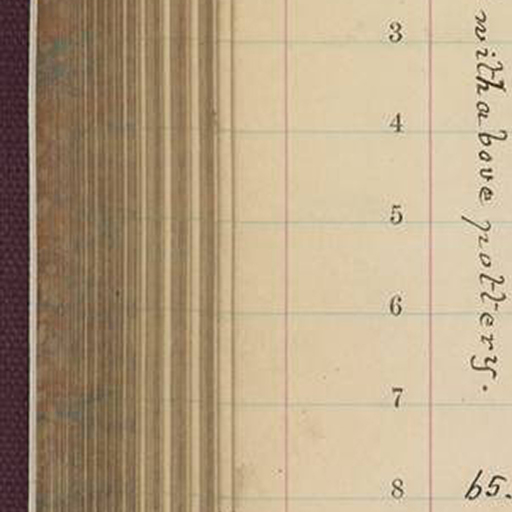 3
4
5
6
7
8
with above pottery.
65.